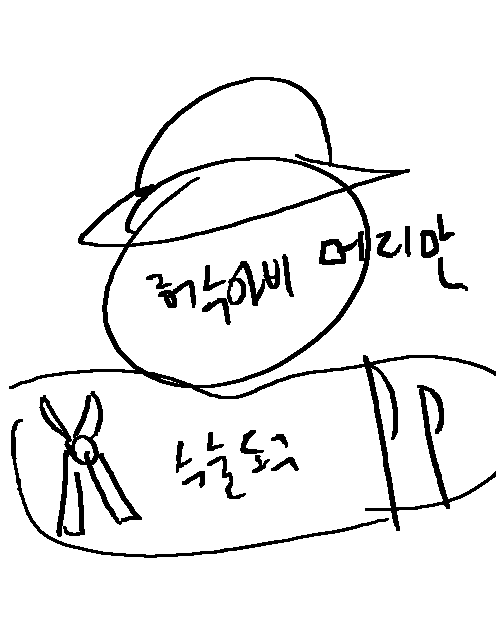 허수아비 머리만
수술도구